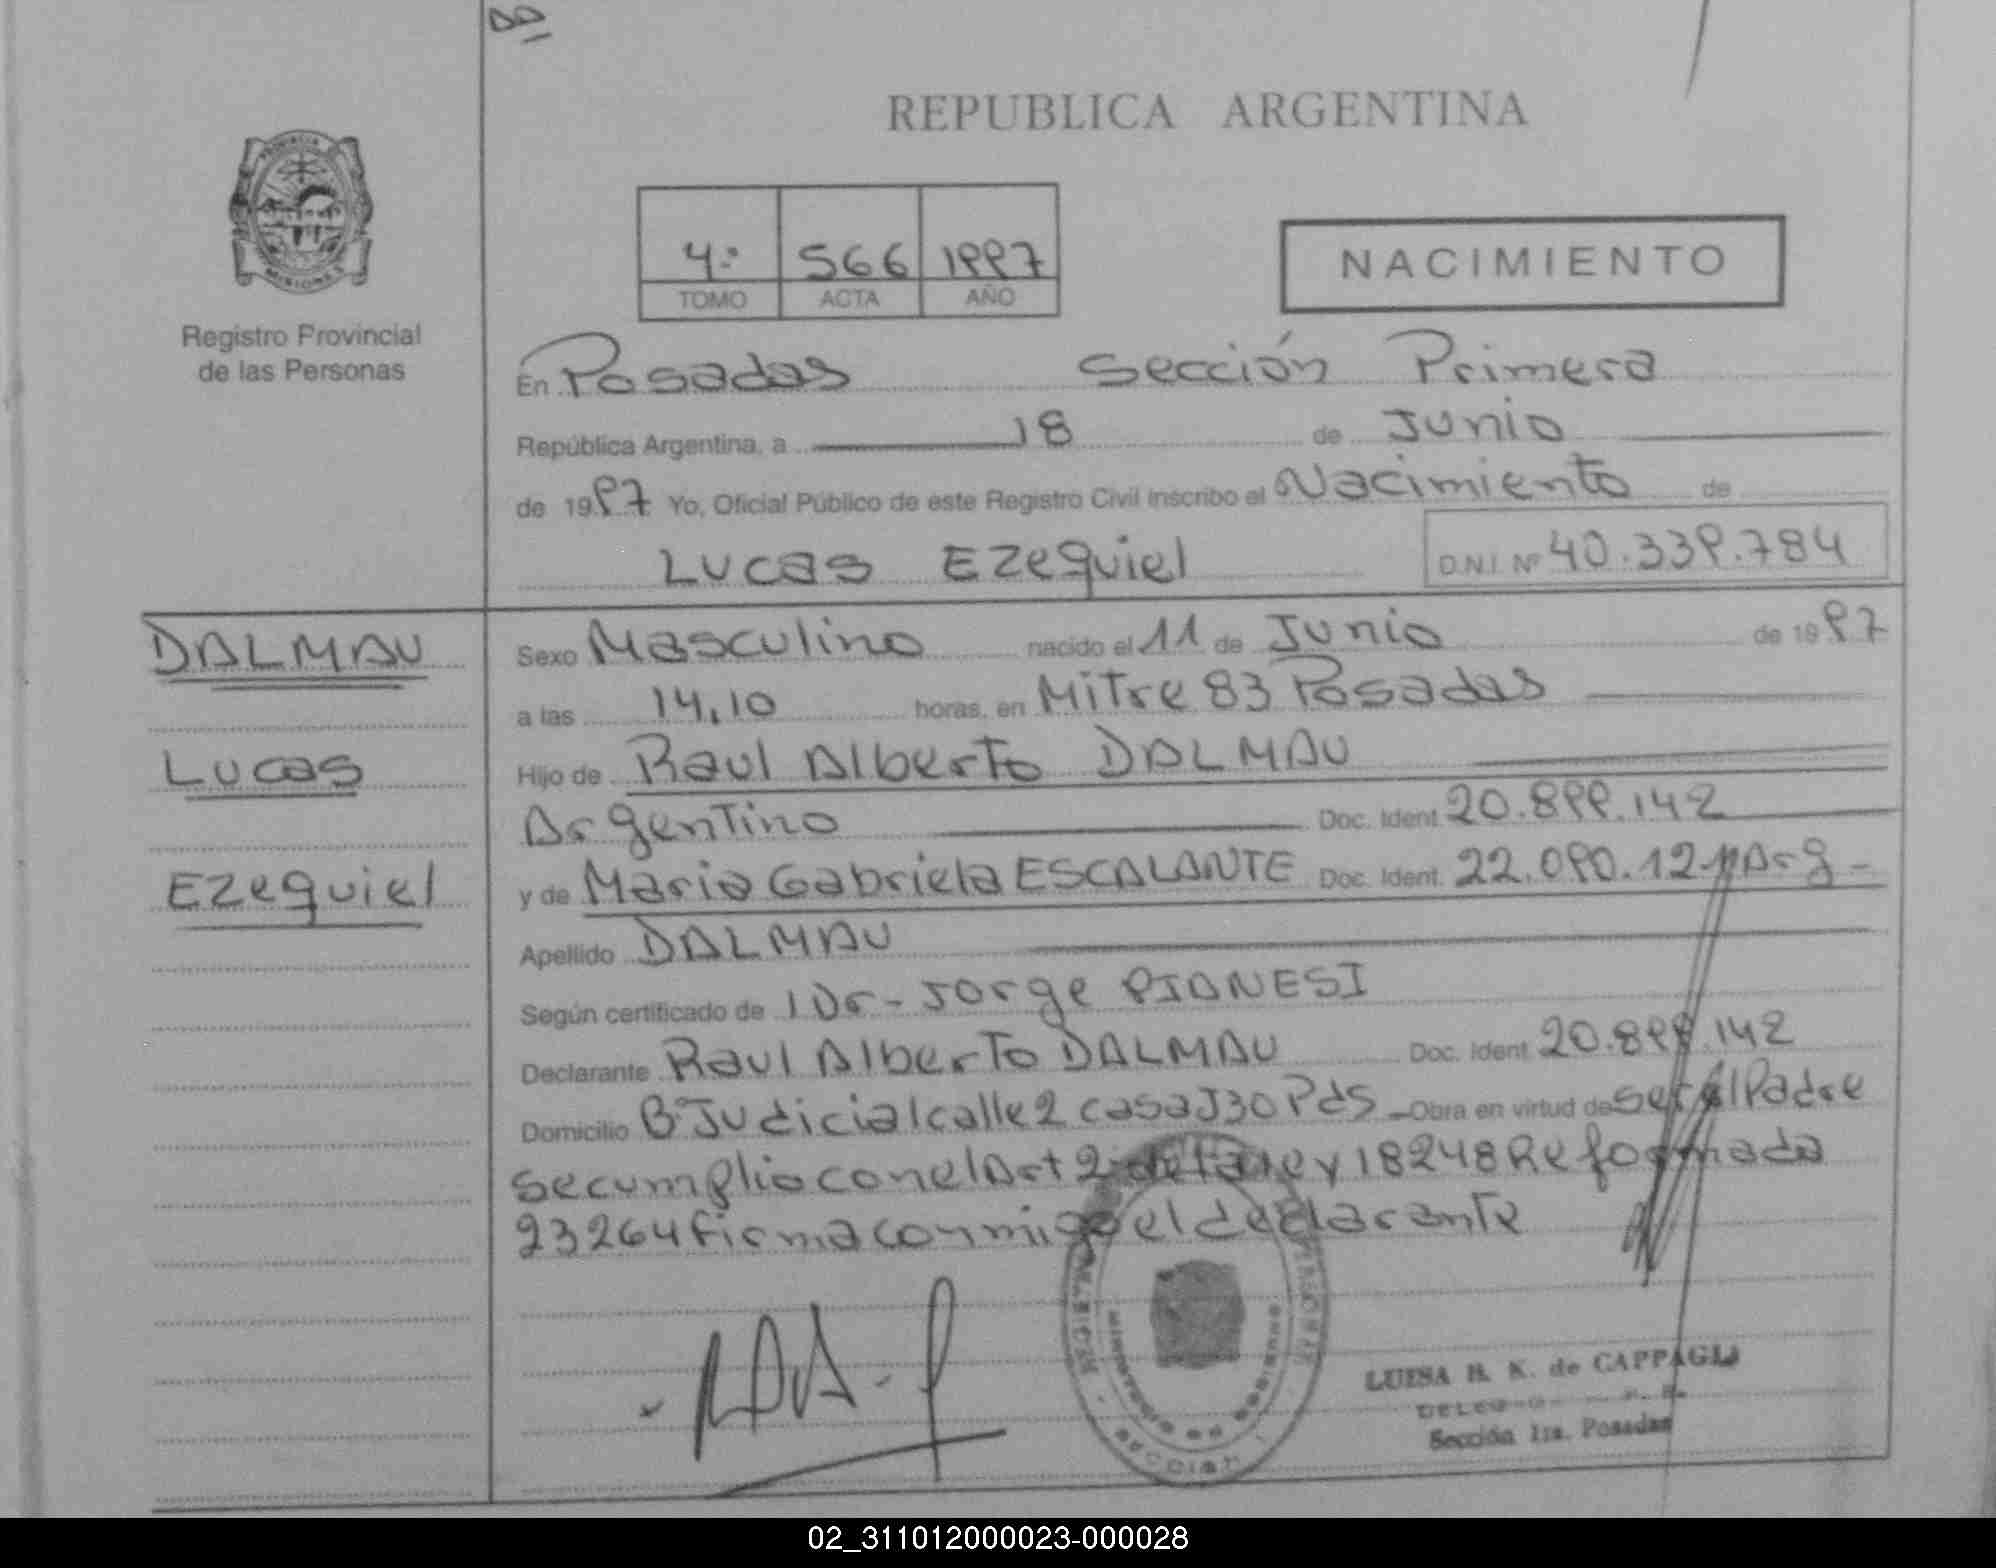 REPUBLICA ARGENTINA
PROVINCIA
MISIONES
Registro Provincial
de las Personas
4º 566 1997
TOMO ACTA AÑO
NACIMIENTO
En Posadas Sección Primera
República Argentina, a 18 de Junio
de 1997 Yo, Oficial Público de este Registro Civil inscribo el Nacimiento de
Lucas Ezequiel D.N.I. Nº 40.339.784
DALMAU
Lucas
Ezequiel
Sexo Masculino nacido el 11 de Junio de 1997
a las 14,10 horas, en Mitre 83 Posadas
Hijo de Raul Alberto DALMAU
Argentino Doc. Ident. 20.899.142
y de Maria Gabriela ESCALANTE Doc. Ident. 22.090.121 Arg -
Apellido DALMAU
Según certificado de l Dr - Jorge PIANESI
Declarante Raul Alberto DALMAU Doc. Ident. 20.899.142
Domicilio Bº Judicial calle 2 casa J30 Pds - Obra en virtud de ser el Padre
se cumplio con el Art 2º de la ley 18248 Reformada
23264 firma conmigo el declarante
LUISA H. K. de CAPPAGLI
Sección 1ra. Posadas
02_311012000023-000028